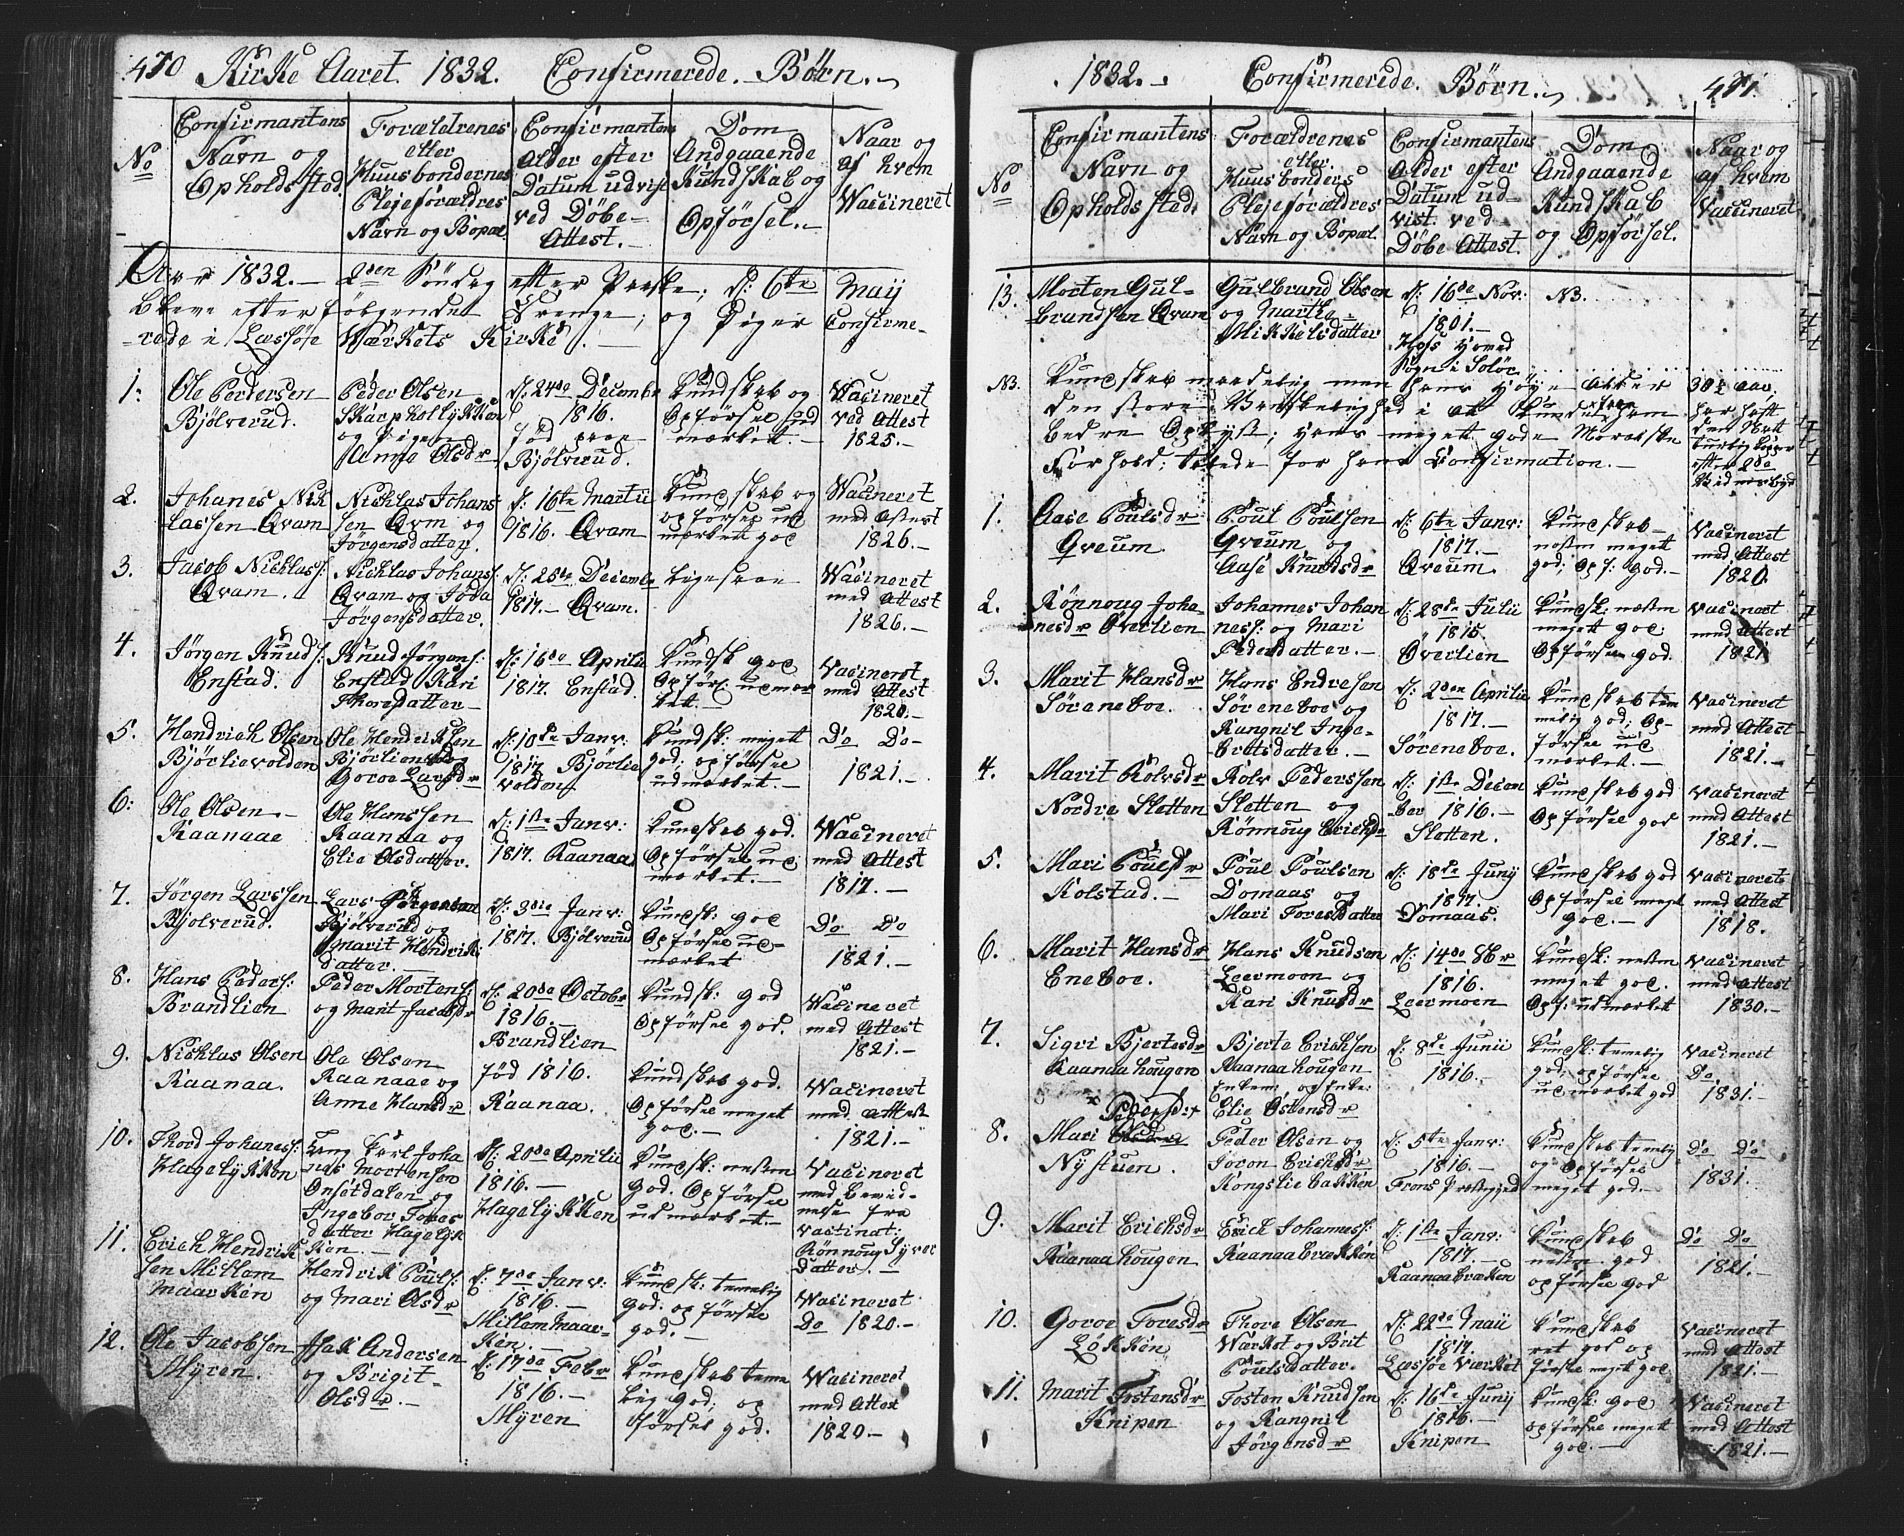 470 Kirke Aaret 1832. Confirmerede. Børn.
No
Confirmantens
Navn og
Opholds sted
Forældrenes
eller
Huusbondernes
Plejeforældres
Navn og Bopæl
Confirmantens
Alder efter
Datum udvist
ved Døbe-
Attest.
Dom
Andgaaende
Kundskab og
Opførsel.
Naar og
af hvem
Waccineret
1832. 2den Søndag efter Paaske; d: 6te Maij
bleve efterfølgende Drenge, og Piger Confirme-
-rede i Læssøe Wærkets Kirke.
1. Ole Pedersen
Bjölverud.
Peder Olsen
Skarphollykken
og Pigen
Anne Olsdr
d: 24de Decembr
1816.
fød paa
Bjölverud.
Kundskab og
Opførsel ud
mærket.
Waccineret
ved Attest
1825.
2. Johanes Nik
lassen Qvam
Nicklas Johans
sen Qvm og
Jörgensdatter.
d: 16te Martii
1816. Qvam
Kundskab og
opførsel ud
mærket god
Waccineret
med Attest
1826.
3. Jacob Nicklas:
Qvam.
Nicklas Johans:
Qvam og
Jörgensdatter.
d: 25de Decemb
1817. Qvam.
Ligesaa
Waccineret
med Attest
1826.
4. Jörgen Knuds:
Enstad.
Knud Jörgens:
Enstad Kari
Thoresdatter
d: 16de Aprili
1817. Enstad.
Kundsk god
Opførs: udmær
ket.
Waccineret
med Attest
1820.
5. Hendrich Olsen
Bjørlievolden
Ole Hendriksen
Bjørlien og
Goroe Larsdr
d: 10de Janv:
1817. Bjørlie
volden
Kundsk: meget
god; opførsel
udmærket.
Do Do
1821.
6: Ole Olsen
Raanaae
Ole Hanssen
Raanaa og
Elie Olsdatter.
d: 1ste Janv:
1817. Raanaa
Kundskab god.
Opførsel ud
mærket.
Waccineret
med Attest
1817.
7. Jörgen Larssen
Bjölverud.
Lars Jörgensen
Bjölverud og
Marit Hendriks
datter.
d: 3die Janv:
1817. Bjölverud
Kundsk: god
Opførsel ud-
mærket
Do Do
1821.
8. Hans Peders:
Brandlien
Peder Mortens:
og Marit Jacobsdr
d: 20de Octobr
1816.
Brandlien
Kundsk: god
Opførsel god.
Waccineret
med Attest
1821.
9. Nicklas Olsen
Raanaa.
Ole Olsen
Raanaae og
Anne Hansdr
fød 1816.
Raanaa.
Kundskab god.
Opførsel meget
god.
Waccineret
med Attest
1821.
10. Thord Johanes:
Hagelykken
Ung Karl Joha
nes Mortensen
Onsetdalen og
Ingebor Tores
datter Hagelyk
ken.
d: 20de Aprilii
1816.
Hagelykken
Kundsk: næsten
god. Opførsel
udmærket.
Waccineret
med bevid-
nelse fra
vaccinat:
Rönnoug Syver
datter.
11. Erich Hendrik
sen Millom
Maarken
Hendrik Pouls:
og Mari Olsdr
d: 7de Janv:
1816.
Millom Maar-
ken.
Kundsk: temelig
god. opførsle
god.
Waccineret
Do 1820.
12. Ole Jacobsen
Myren.
Andersen
og Brigit
Olsdr.
d: 17de Febr
1816.
Myren
Kundskab teme
lig god; op
førsel god.
Waccineret
med Attest
1820.
1832. Confirmerede. Børn. 471.
No
Confirmantens
Navn og
Opholds sted.
Forældrenes
eller
Huusbonders
Plejeforældres
Navn og Bopæl.
Confirmantens
Alder efter
Datum ud-
vist. ved
Döbe Attest.
Dom
Andgaaende
Kundskab
og Opførsel.
Naar og
af hvem
Vaccineret
13. Morten Gul-
brandsen Qvam
Gulbrand Olsen
og Marthe
Mikkelsdatter
d: 16de Nov:
1801.
Hofs Hoved
Sogn i Soløe.
NB.
NB. Kundskab maadelig men hans høye Alder 30 aar,
den store Vanskelighed i at kunde
bedre Oplyst; hans meget gode Moralske
Forhold; talede for hans Confirmation.
1. Aase Poulsdr
Qveum.
Poul Poulsen
Qveum og
Aase Knudsdr
d: 6te Janv:
1817.
Qveum.
Kundskab
næsten meget
god; Opf: god.
Vaccineret
med Attest
1820.
2. Rönnoug Joha
nesdr Överlien
Johannes Johan
nes: og Mari
Pedersdatter.
d: 28de Julii
1815.
Överlien
Kundsk: næsten
meget god.
Opførsel god.
Vaccineret
med Attest
1821
3. Marit Hansdr
Söreneboe.
Hans Endresen
Söreneboe og
Rangnil Inge-
bretsdatter.
d: 2den Aprilie
1817.
Söreneboe.
Kundskab tem
melig god; Op-
førsel ud
mærket.
Vaccineret
med Attest
1821.
4. Marit Rolvsdr
Nordre Sletten
Rolv Pederssen
Sletten og
Rönnoug Erichsdr
d: 1ste Decem
ber 1816.
Sletten.
Kundskab god
Opførsel god
Vaccineret
med Attest
1821.
5. Mari Poulsdr
Kolstad.
Poul Poulsen
Domaas og
Mari Toresdatter
d: 18de Junij
1817.
Domaas.
Kundskab god
Opførsel meget
god.
Vaccineret
med Attest
1818.
6. Marit Hansdr
Eneboe.
Hans Knudsen
Leermoen og
Kari Knudsdr
d: 14de 8br
1816.
Leermoen
Kundsk: næsten
meget god.
Opf: udmærket
Vaccineret
med Attest
1830.
7. Sigri Bjertesdr
Raanaa hougen
Bjerte Erichsen
Raanaa hougen
Enkem: og Enke:
Elie Östensdr
d: 8de Junii
1816.
Kundsk: temelig
god; opførsel
udmærket god
Vaccineret
Do
1831.
8. Mari Pedersdr
Nystuen.
Peder Olsen og
Joron Erichsdr
Kongslie bakken
d: 5te Janv:
1816.
Frons Præstegjeld
Kundskab temelig
og Opførsel
meget god.
Do Do
1831.
9. Marit Erichsdr
Raanaa hougen
Erick Johannes:
Raanaabrækken
d: 1ste Janv:
1817.
Raanaabrækken
Kundskab
næsten god
opførsel god
Do Do
1821.
10. Goroe Toresdr
Løkken
Thore Olsen
Wærket og Brit
Poulsdatter.
d: 22de Maii
1817.
Læssøe Værket
Kundskab
ret god op
førsle meget god.
Vaccineret
med Attest
1821.
11. Marit Tostensdr
Knipen
Tosten Knudsen
og Rangnil
Jörgensdr
d: 16de Junij
1816.
Knipen
Kundsk: god
opførsel meget
god.
Vaccineret
med Attest
1821.